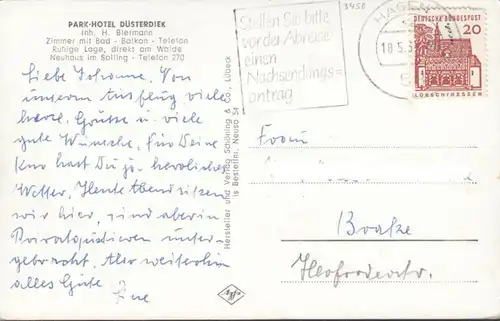 PARK-HOTEL DÜSTERDIEK
Inh. H. Biermann
Zimmer mit Bad - Balkon - Telefon
Ruhige Lage, direkt am Walde
Neuhaus im Solling - Telefon 270
Liebe Johanne. Von
unserem Ausflug viele
herzl. Grüsse u. viele
gute Wünsche, für Deine
Kur hast Du ja herrliches
Wetter. Heute Abend sitzen
wir hier, sind aber in
Privatquartieren unter-
gebracht. Also weiterhin
alles Gute
Hersteller und Verlag Schöning & Co., Lübeck
Stellen Sie bitte
vor der Abreise
einen
Nachsendungs=
antrag
3458
HAGEN
18.5.
DEUTSCHE BUNDESPOST
20
LORSCH/HESSEN
Frau